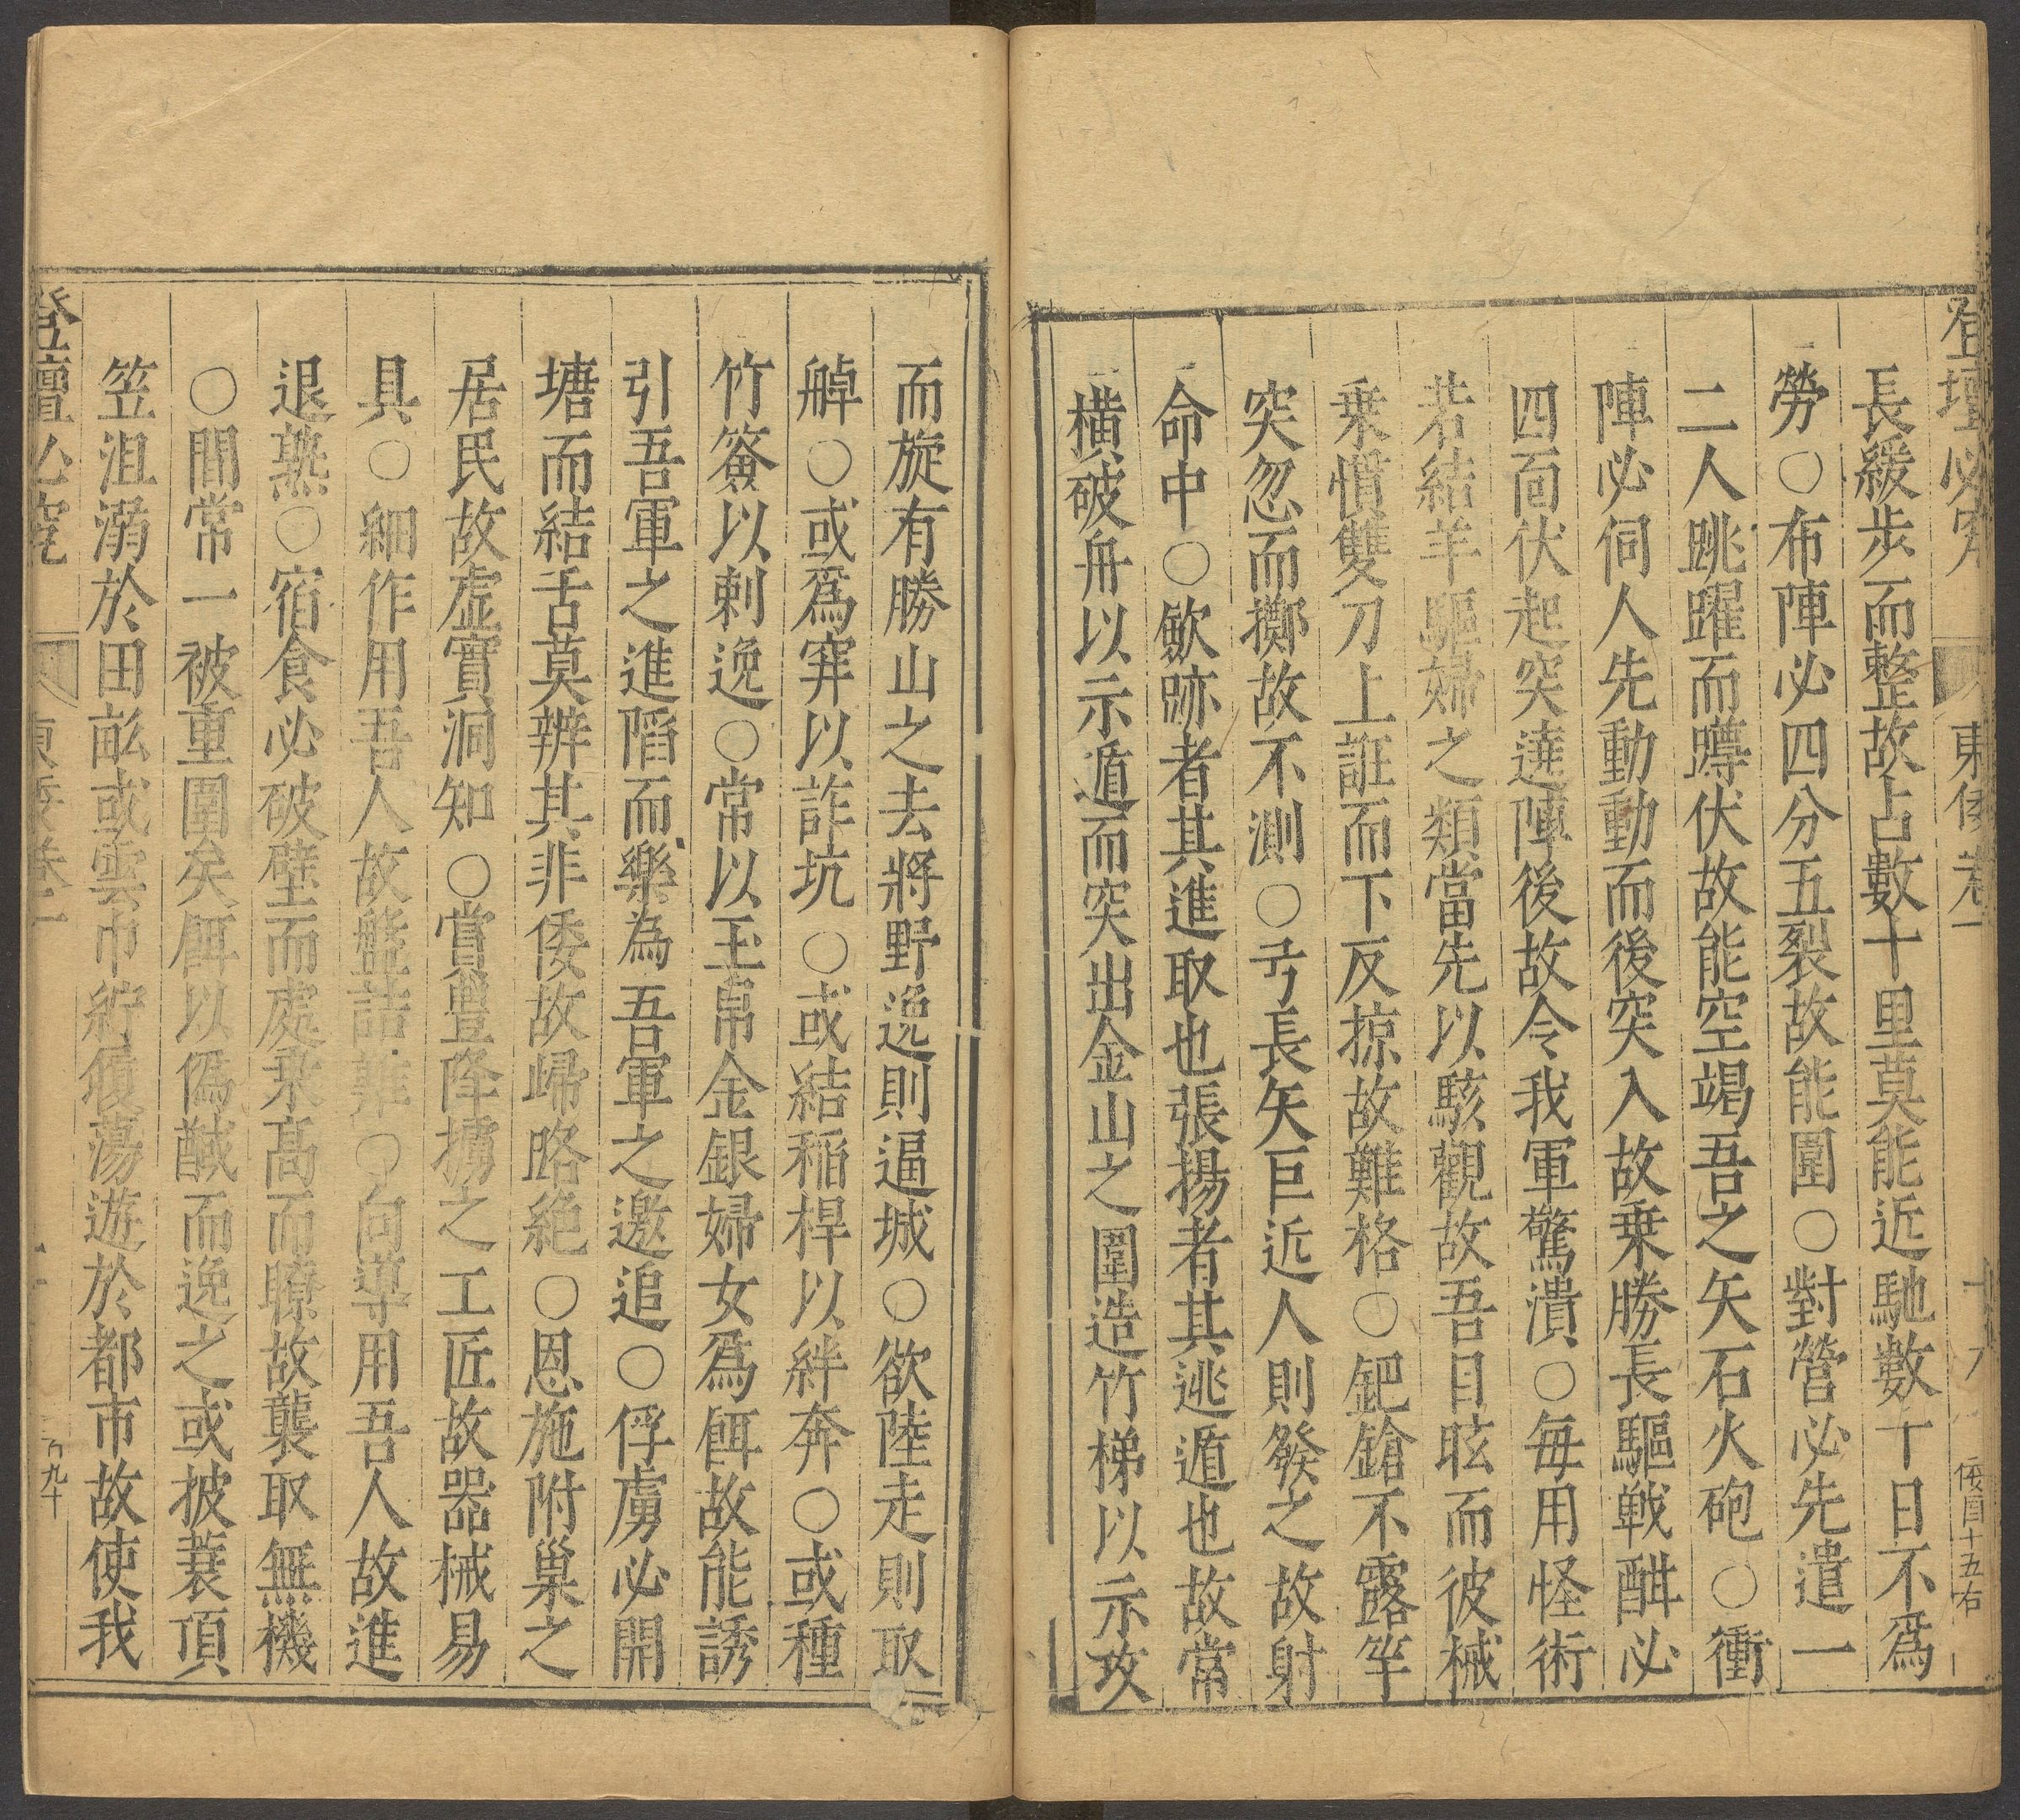 登壇必究 東倭卷一 倭酉十五右
長緩步而整故占數十里莫能近馳數十日不爲
勞○布陣必四分五裂故能圍○對營必先遣一
二人跳躍而蹲伏故能空竭吾之矢石火砲○衝
陣必伺人先動動而後突入故乗勝長驅戦酣必
四面伏起突遶陣後故令我軍驚潰○每用怪術
若結羊驅婦之類當先以駭觀故吾目眩而彼械
乗慣雙刀上誑而下反掠故難格○鈀鎗不露竿
突忽而擲故不測○弓長矢巨近人則發之故射
命中○歛跡者其進取也張揚者其逃遁也故常
橫破舟以示遁而突出金山之圍造竹梯以示攻
而旋有勝山之去將野逸則逼城○欲陸走則取
艀○或爲穽以詐坑○或結稲桿以絆奔○或種
竹簽以刺逸○常以玉帛金銀婦女爲餌故能誘
引吾軍之進陷而樂為吾軍之邀追○俘虜必開
塘而結舌莫辨其非倭故歸路絶○恩施附巢之
居民故虛實洞知○賞豐降擄之工匠故器械易
具○細作用吾人故盤詰難○向導用吾人故進
退熟○宿食必破壁而處乗高而瞭故襲取無機
○間常一被重圍矣餌以僞馘而逸之或披蓑頂
笠沮溺於田畝或雲巾紵履蕩遊於都市故使我
登壇必究 東倭卷一